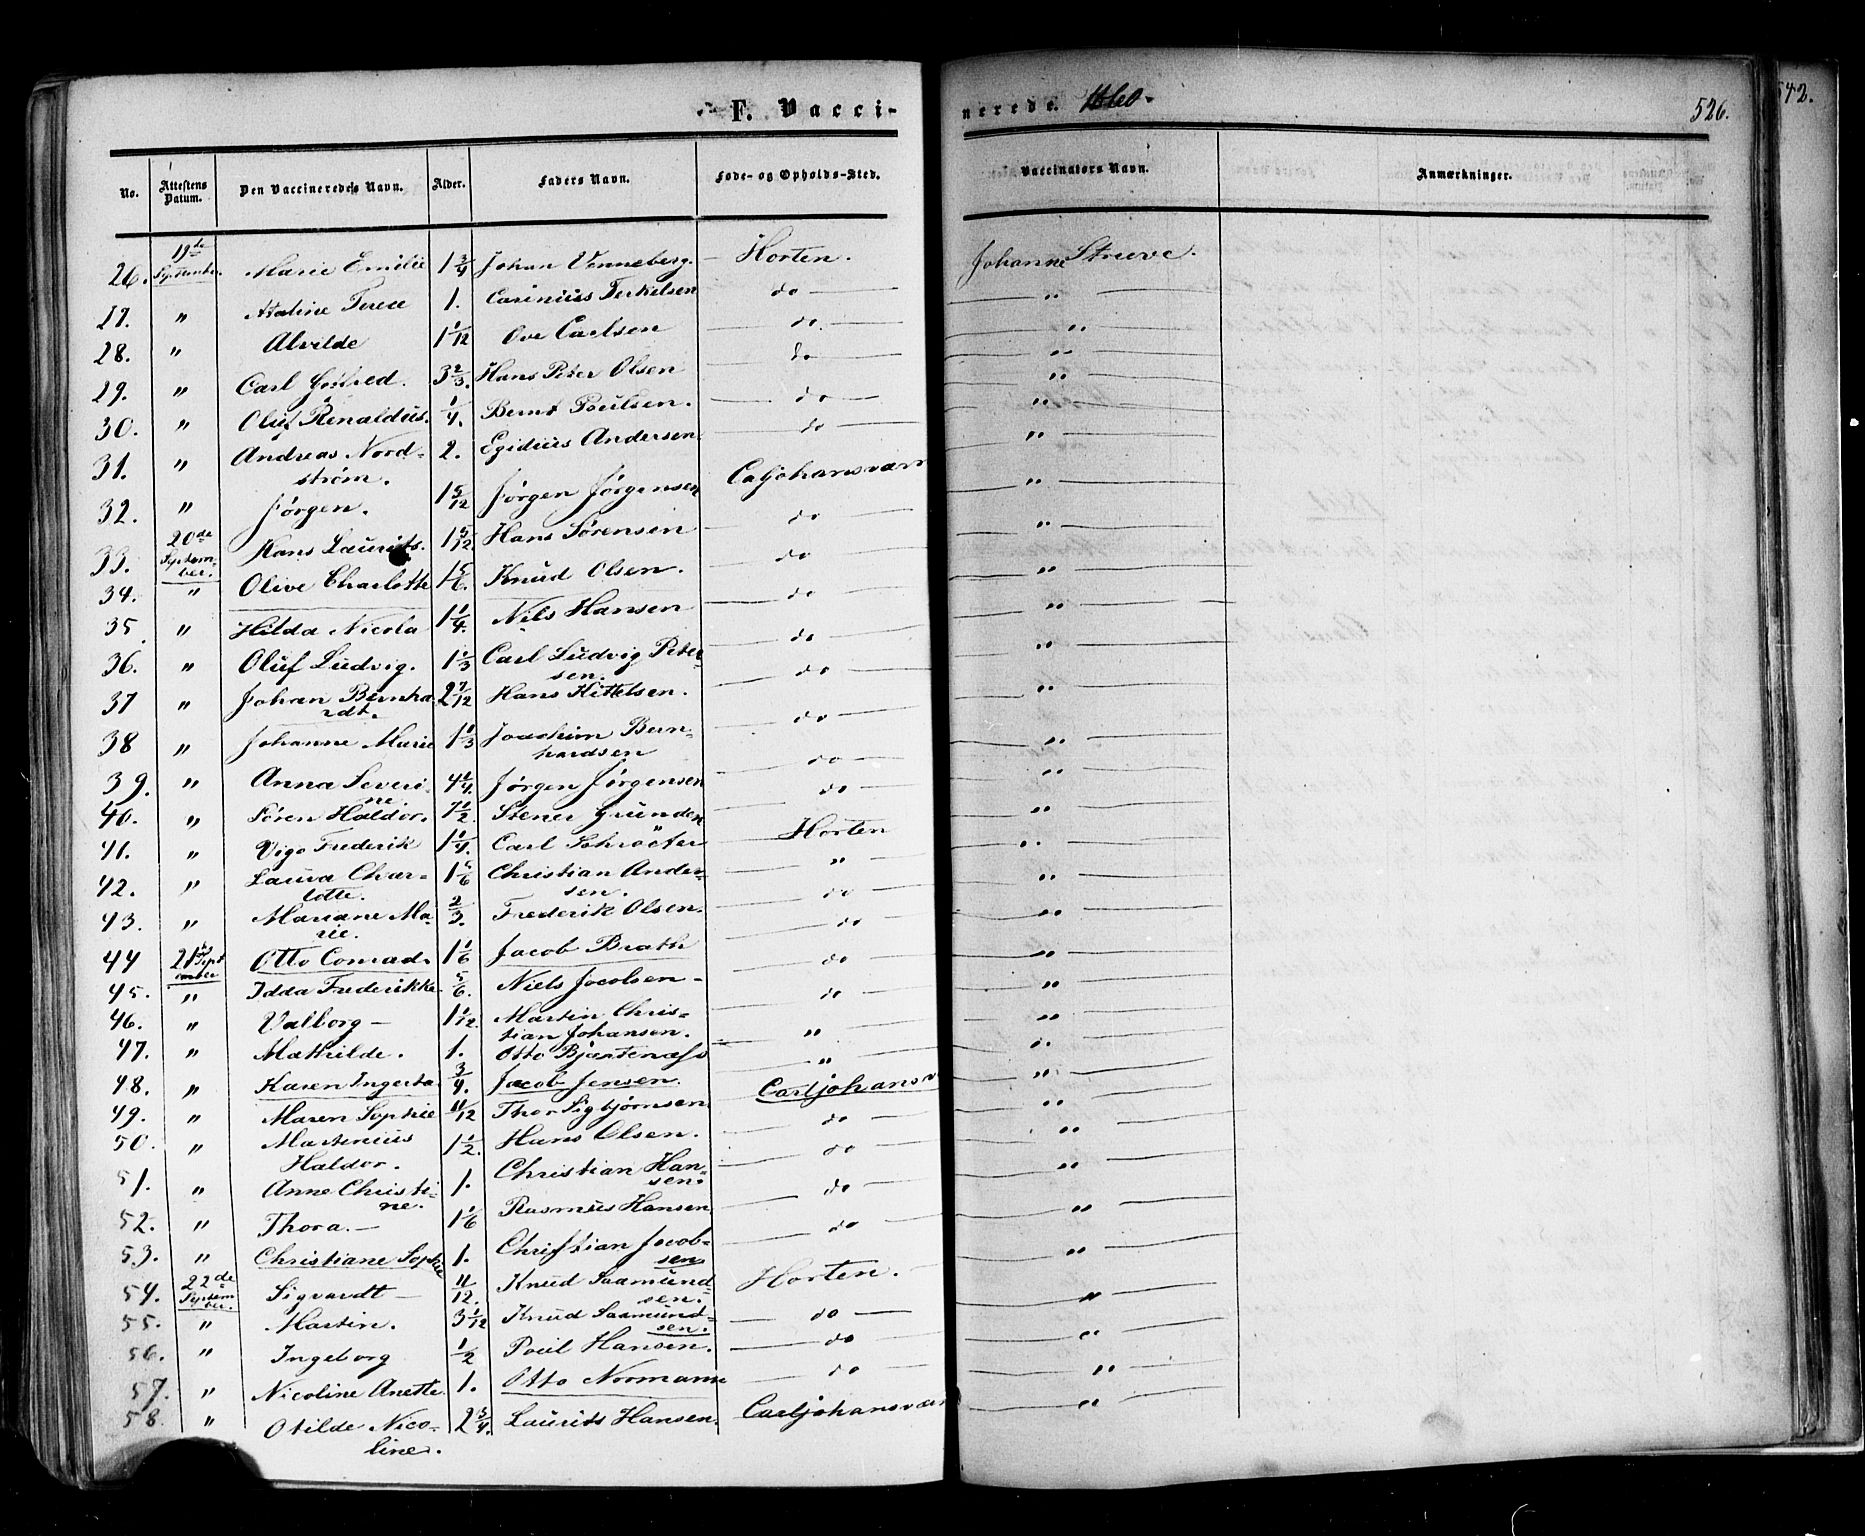 F. Vacci-
nerede. 1860.
526.
542.
No. | Attestens Datum. | Den Vaccineredes Navn. | Alder. | Faders Navn. | Føde- og Opholds-Sted. | Vaccinators Navn. | Anmærkninger.
26. | 19de September. | Marie Emilie | 1 3/4 | Johan Venneberg. | Horten. | Johanne Strueve.
27. | " | Terese | 1. | Carinius Terkelsen | do | "
28. | " | Alvilde | 1 1/12 | Ove Carlsen | do. | "
29. | " | Carl Gotfred. | 3 2/3. | Hans Peter Olsen | do | "
30. | " | Oluf Renaldus. | 1/4. | Bernt Poulsen. | do | "
31. | " | Andreas Nord-
strøm. | 2. | Egidius Andersen. | do | "
32. | " | Jørgen. | 1 5/12 | Jørgen Jørgensen | Caljohansværn | "
33. | 20de Septem-
ber. | Hans Laurits. | 1 5/12. | Hans Sørensen | do | "
34. | " | Olive Charlotte | 1 5/6. | Knud Olsen. | do | "
35. | " | Hilda Nicola | 1 1/4. | Nils Hansen | do | "
36. | " | Oluf Ludvig. | 1 1/3 | Carl Ludvig Peter-
sen. | do | "
37 | " | Johan Bernha
rdt. | 2 7/12 | Hans Kittelsen. | do | "
38 | " | Johanne Marie | 1 1/3 | Joachim Bern-
hardsen | do | "
39. | " | Anna Severi-
ne. | 4 1/4. | Jørgen Jørgensen | do | "
40. | " | Søren Haldor. | 7 1/2. | Stener Grunden | do | "
41. | " | Vigo Frederik | 1 1/4. | Carl Schröeter | Horten | "
42. | " | Laura Char-
lotte. | 1 5/6 | Christian Ander-
sen. | " | "
43. | " | Mariane Ma-
rie. | 2/3. | Frederik Olsen. | do | "
44 | 21de Sept
ember | Otto Conrad. | 1 1/6 | Jacob Brath | do | "
45. | " | Idda Frederikke | 5/6. | Niels Jacobsen | do | "
46. | " | Valborg | 1 1/12. | Martin Chris-
tian Johansen. | do | "
47. | " | Mathilde. | 1. | Otto Bjertenæss | " | "
48. | " | Karen | 3/4. | Jacob Jensen. | " | "
49. | " | Maren Sophie | 11/12 | Thor Sigbjørnsen | Carljohansv | "
50. | " | Martinius
Haldor. | 1 1/2. | Hans Olsen. | do | "
51. | " | Anne Christi-
ne. | 1. | Christian Han-
sen. | do | "
52. | " | Thora. | 1 1/6 | Rasmus Hansen | do | "
53. | " | Christiane Sophie | 1. | Christian Jacob-
sen | do | "
54. | 22de
Septem
ber. | Sigvardt | 11/12. | Knud Saamund-
sen. | Horten. | "
55. | " | Martin. | 3 1/12 | Knud Saamund-
sen. | do | "
56. | " | Ingeborg | 1/2 | Poul Hansen. | do | "
57. | " | Nicoline Anette | 1. | Otto Normann | do | "
58. | " | Otilde Nico-
line. | 2 3/4. | Laurits Hansen. | Carljohansvær | "